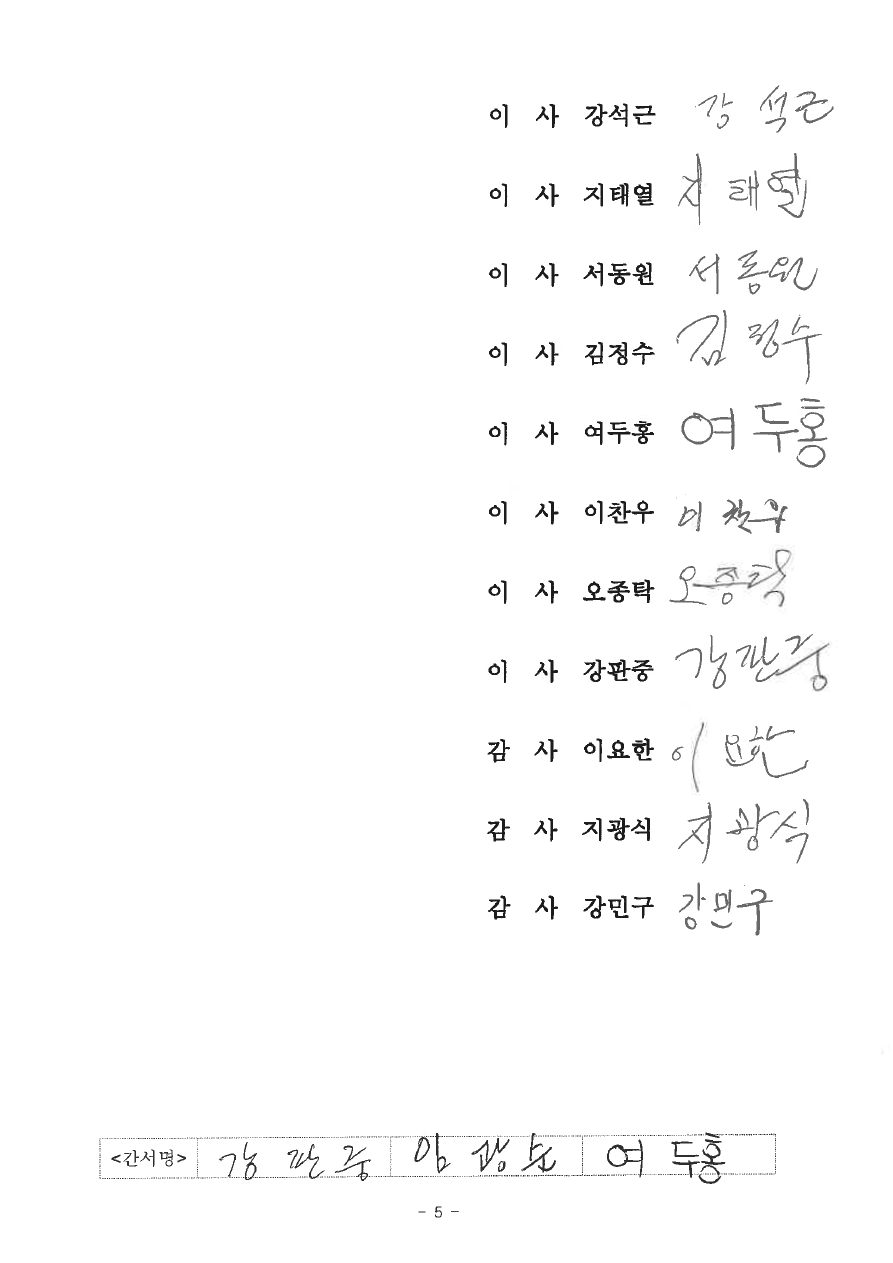 이 사 강석근 강 석근
이 사 지태열 지 태열
이 사 서동원 서 동원
이 사 김정수 김 정수
이 사 여두홍 여 두홍
이 사 이찬우 이 찬우
이 사 오종탁 오종탁
이 사 강판중 강판중
감 사 이요한 이 요한
감 사 지광식 지 광식
감 사 강민구 강민구
<간서명> 강 판 중 임 광 여 두홍
- 5 -